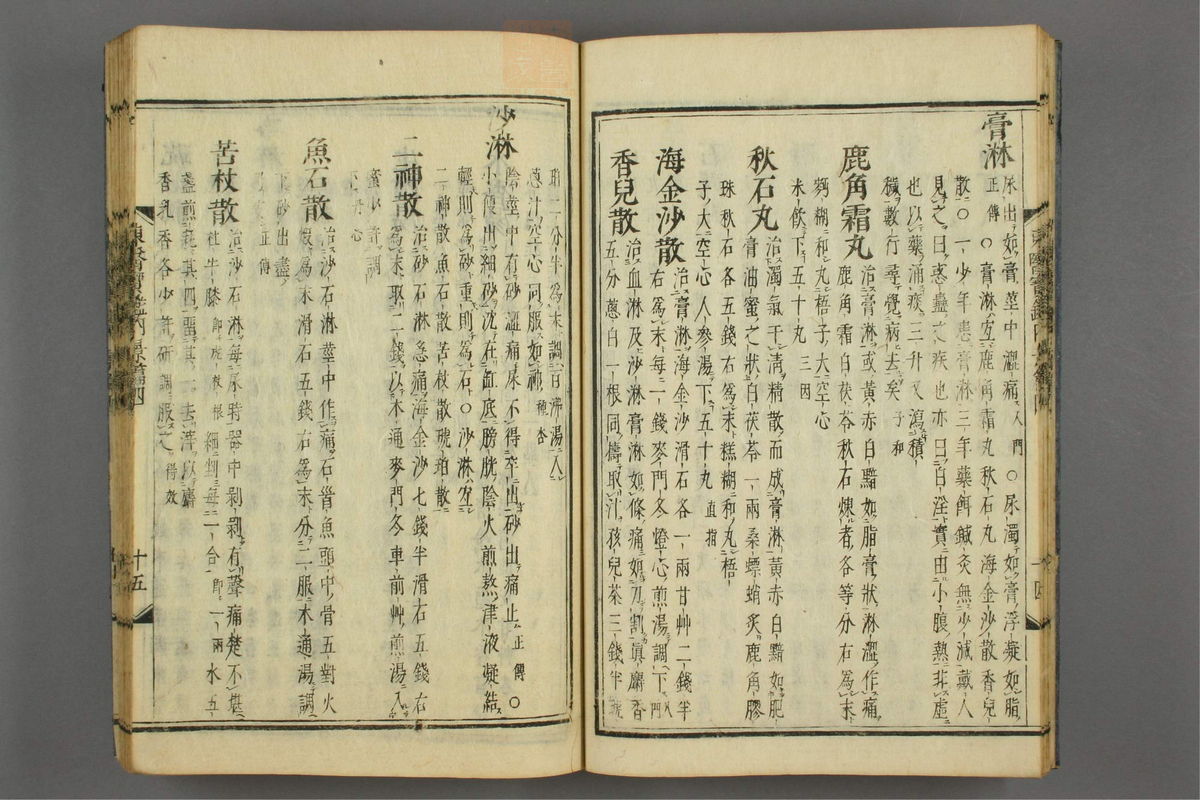 膏淋
尿出如膏莖中澀痛入門○尿濁如膏浮凝如脂
正傳○膏淋宜鹿角霜丸秋石丸海金沙散香兒
散○一少年患膏淋三年藥餌鍼灸無少減戴人
見之曰惑蠱之疾也亦曰白淫實由小腹熱非虛
也以藥涌痰三升又瀉積
穢數行尋覺病去矣子和
鹿角霜丸
治膏淋或黃赤白黯如脂膏狀淋澀作痛
鹿角霜白茯苓秋石煉者各等分右爲末
糊和丸梧子大空心
米飮下五十丸三因
秋石丸
治濁氣干淸精散而成膏淋黃赤白黯如肥
膏油蜜之狀白茯苓一兩桑螵蛸炙鹿角膠
珠秋石各五錢右爲末糕糊和丸梧
子大空心人參湯下五十丸直指
海金沙散
治膏淋海金沙滑石各一兩甘艸二錢半
右爲末每一錢麥門冬燈心煎湯調下入門
香兒散
治血淋及沙淋膏淋如條痛如刀割眞麝香
五分葱白一根同擣取汁孩兒茶三錢半琥
珀二分半爲末調百沸湯入
葱汁空心同服如神種杏
沙淋
陰莖中有砂澀痛尿不得卒出砂出痛止正傳○
小便出細砂沈在缸底膀胱陰火煎熬津液凝結
輕則爲砂重則爲石○沙淋宜
二神散魚石散苦杖散琥珀散
二神散
治砂石淋急痛海金沙七錢半滑石五錢右
爲末取二錢以木通麥門冬車前艸煎湯入
蜜少許調
下丹心
魚石散
治沙石淋莖中作痛石首魚頭中骨五對火
煅爲末滑石五錢右爲末分二服木通湯調
下砂出盡
正傳
苦杖散
治沙石淋每尿時器中剝剝有聲痛楚不堪
杜牛膝卽虎杖根細剉每一合卽一兩水五
盞煎耗其四留其一去滓以麝
香乳香各少許硏調服之得效
東醫寶鑑內景篇四
十五